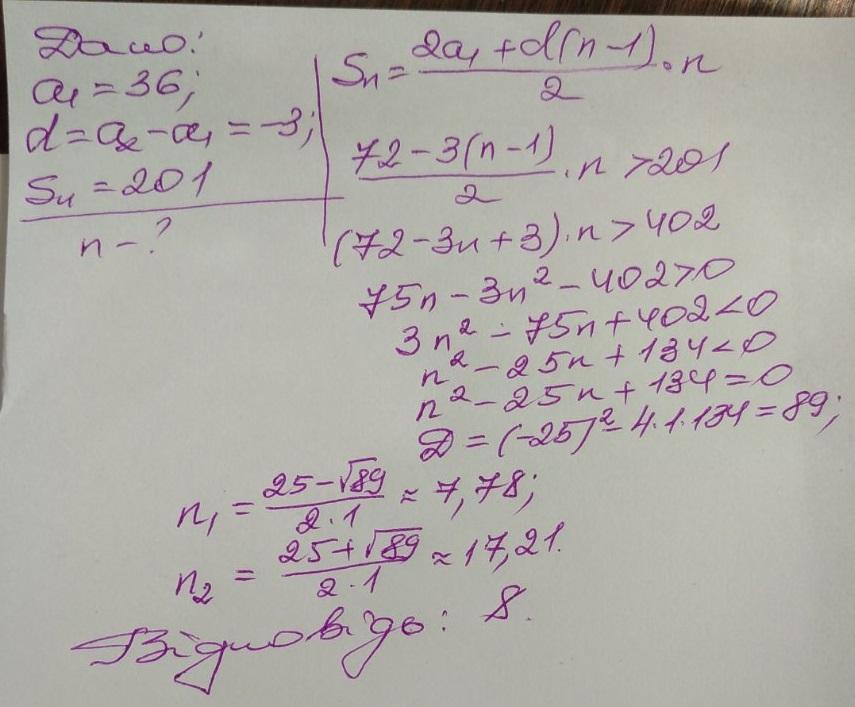 Дано:
a₁ = 36;
d = a₂ - a₁ = -3;
Sₙ = 201
n - ?
Sₙ = (2a₁ + d(n-1))/2 · n
(72 - 3(n-1))/2 · n > 201
(72 - 3n + 3) · n > 402
75n - 3n² - 402 > 0
3n² - 75n + 402 < 0
n² - 25n + 134 < 0
n² - 25n + 134 = 0
D = (-25)² - 4·1·134 = 89;
n₁ = (25 - √89)/(2·1) ≈ 7,78;
n₂ = (25 + √89)/(2·1) ≈ 17,21.
Відповідь: 8.